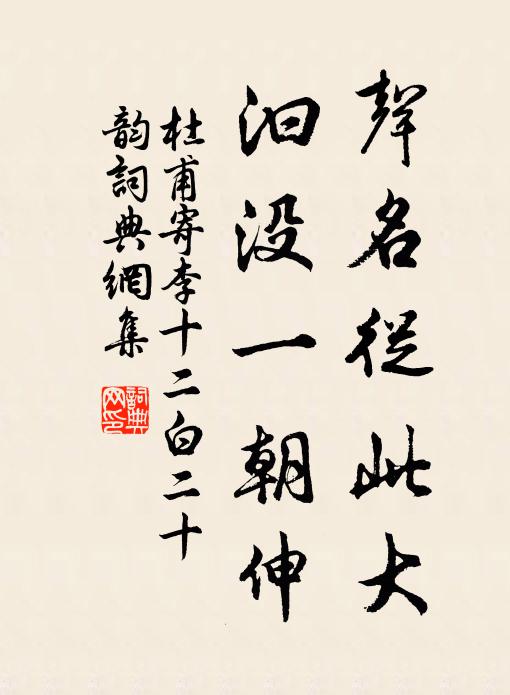 聲名從此大
汩没一朝伸
杜甫寄李十二白二十
韵詞典網集
詞典
网印